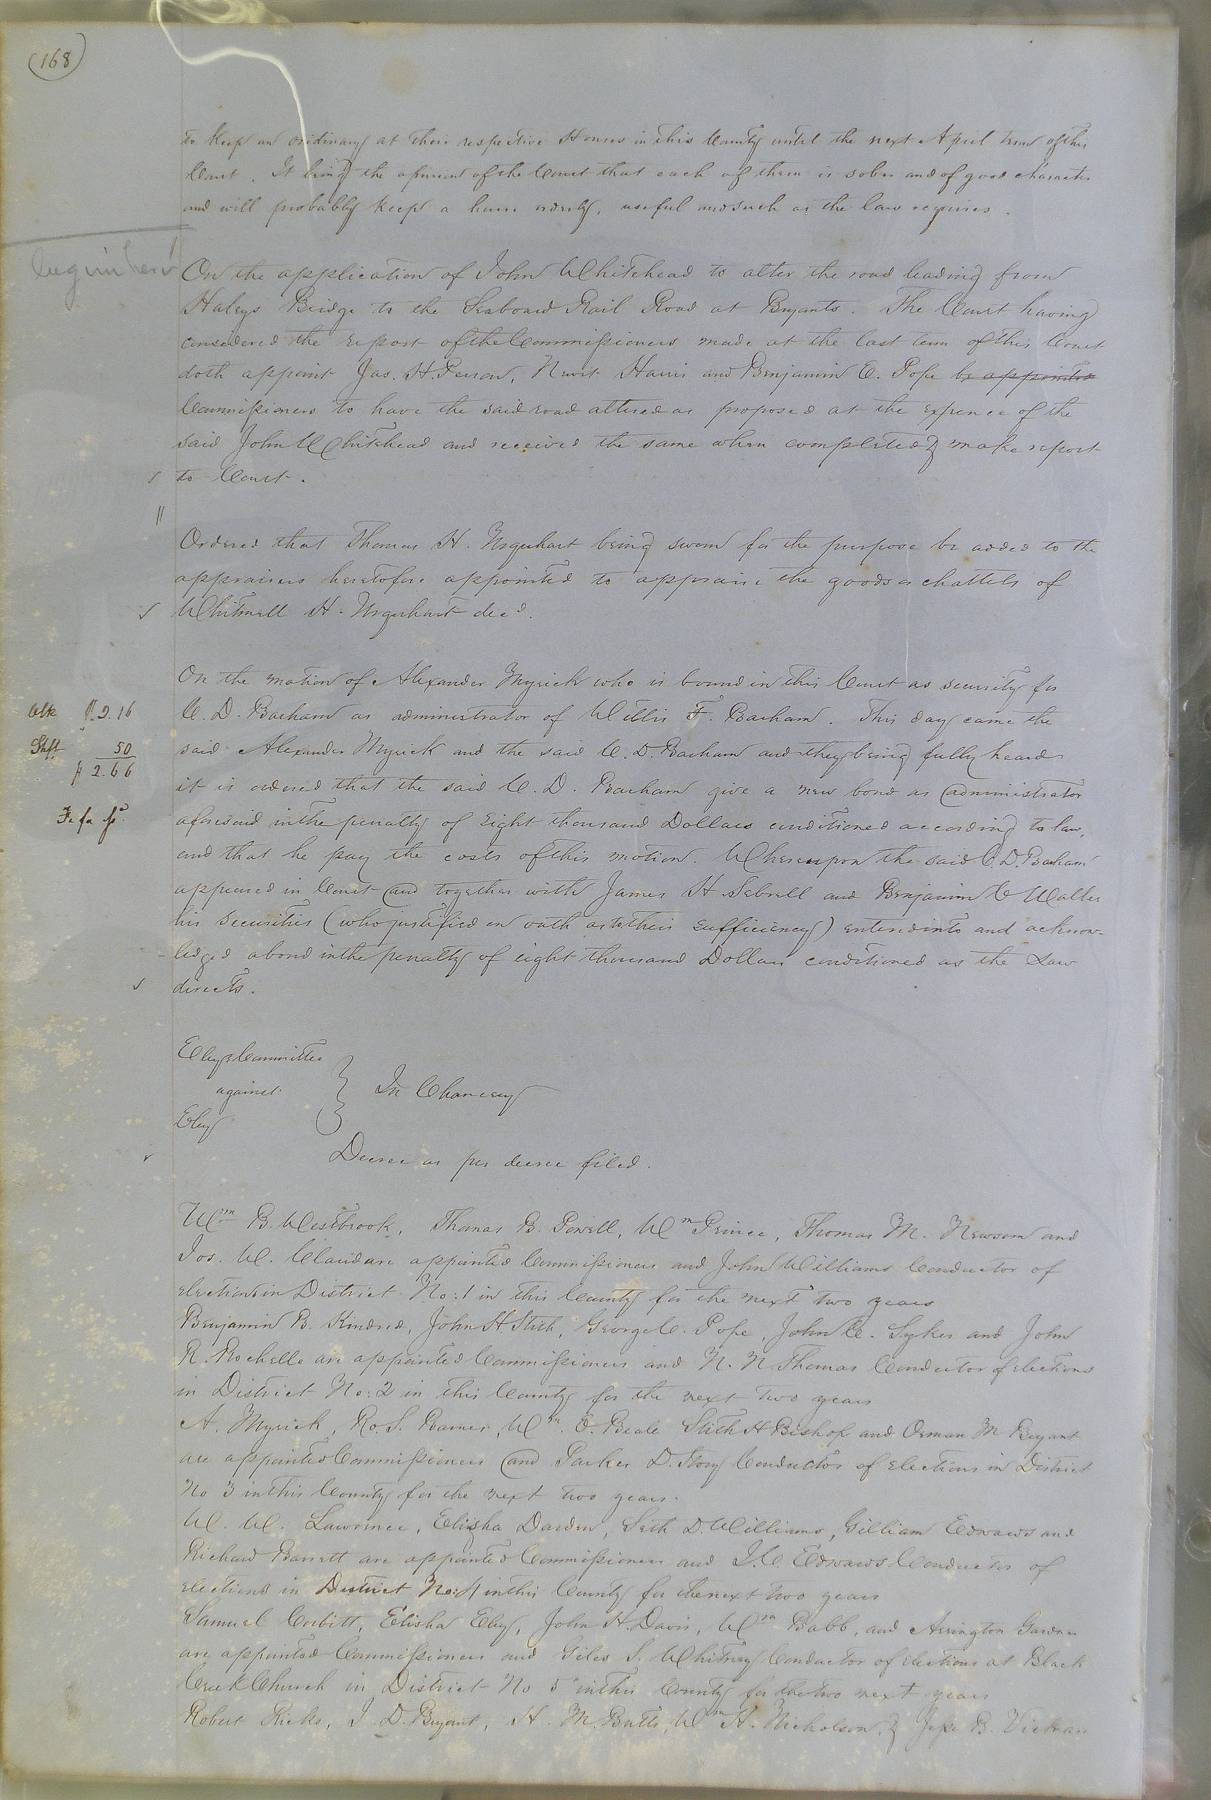 (168)
to keep an ordinary at their respective Houses in this County until the next April term of this
Court. It being the opinion of the Court that each of them is sober and of good character
and will probably keep a house orderly, useful and such as the law requires.
begin here
On the application of John Whitehead to alter the road leading from
Haleys Bridge to the Seaboard Rail Road at Bryants. The Court having
considered the report of the Commissioners made at the last term of this Court
doth appoint Jas. H. Person, Newit Harris and Benjamin E. Pope be appointed
Commissioners to have the said road altered as proposed at the expence of the
said John Whitehead and received the same when completed & make report
to Court.
Ordered that Thomas H. Urquhart being sworn for the purpose be added to the
appraisers heretofore appointed to appraise the goods & chattels of
Whitmell H. Urquhart decd.
On the motion of Alexander Myrick who is bound in this Court as security for
C. D. Barham as administrator of Willis F. Barham. This day came the
Clk $2.16
said Alexander Myrick and the said C. D. Barham and they being fully heard
Shff. 50
$2.66
it is ordered that the said C. D. Barham give a new bond as administrator
Fi fa
aforesaid in the penalty of Eight thousand Dollars conditioned according to law,
and that he pay the costs of this motion. Whereupon the said C. D. Barham
appeared in Court and together with James H. Sebrell and Benjamin C Waller
his securities (who justified on oath as to their sufficiency) entered into and acknow-
-ledged a bond in the penalty of eight thousand Dollars conditioned as the Law
directs.
Eley's Committee
against } In Chancery
Eley
Decree as per decree filed.
Wm B. Westbrook, Thomas B. Powell, Wm Prince, Thomas M. Newsom and
Jos. W. Claud are appointed Commissioners and John Williams Conductor of
elections in District No: 1 in this County for the next two years
Benjamin B. Kindred, John H Stith, George C. Pope, John C. Sykes and John
R. Rochelle are appointed Commissioners and N. N Thomas Conductor of elections
in District No: 2 in this County for the next two years
A. Myrick, Ro. S. Barner, Wm. E. Beale Stith H Bishop and Orman M Bryant
are appointed Commissioners and Parker D. Story Conductor of elections in District
No 3 in this County for the next two years.
W. W. Lawrence, Elisha Darden, Seth D. Williams, Gilliam Edwards and
Richard Barrett are appointed Commissioners and J. C. Edwards Conductor of
elections in District No: 4 in this County for the next two years
Samuel Corbitt, Elisha Eley, John H. Davis, Wm Babb, and Arrington Gardner
are appointed Commissioners and Giles S. Whitney Conductor of elections at Black
Creek Church in District No 5 in this County for the two next years
Robert Ricks, J. D. Bryant, H. M. Butts, Wm H. Nicholson, & Jesse B. Vickran